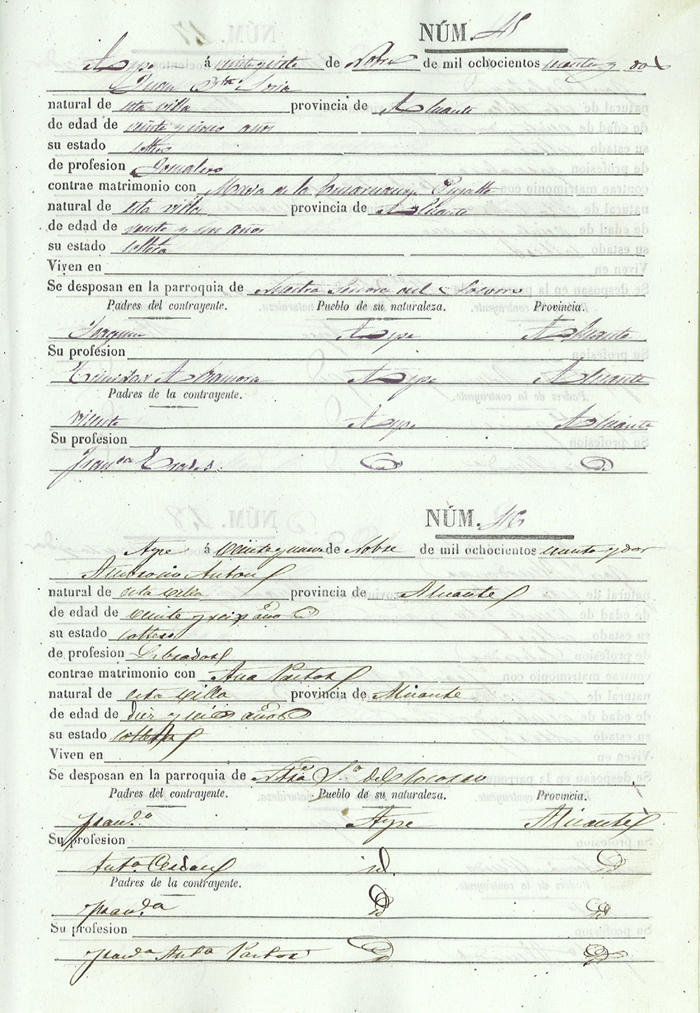 NÚM. 45
Aspe á veinte y siete de Nobre de mil ochocientos noventa y dos
Juan Soria
natural de esta villa provincia de Alicante
de edad de veinte y cinco años
su estado soltero
de profesion Jornalero
contrae matrimonio con Maria de la
natural de esta villa provincia de Alicante
de edad de veinte y un años
su estado soltera
Viven en
Se desposan en la parroquia de Nuestra Señora del Socorro
Padres del contrayente. Pueblo de su naturaleza. Provincia.
Joaquin Aspe Alicante
Su profesion
Trinidad Aspe Alicante
Padres de la contrayente.
Vicente Aspe Alicante
Su profesion
Franca
NÚM. 46
Aspe á veinte y nueve de Nobre de mil ochocientos noventa y dos
Anton
natural de esta villa provincia de Alicante
de edad de veinte y seis años
su estado soltero
de profesion Labrador
contrae matrimonio con Ana Pastor
natural de esta villa provincia de Alicante
de edad de diez y años
su estado soltera
Viven en
Se desposan en la parroquia de Ntra Sra del Socorro
Padres del contrayente. Pueblo de su naturaleza. Provincia.
Franco Aspe Alicante
Su profesion
Anta id.
Padres de la contrayente.
Su profesion
Anta Pastor